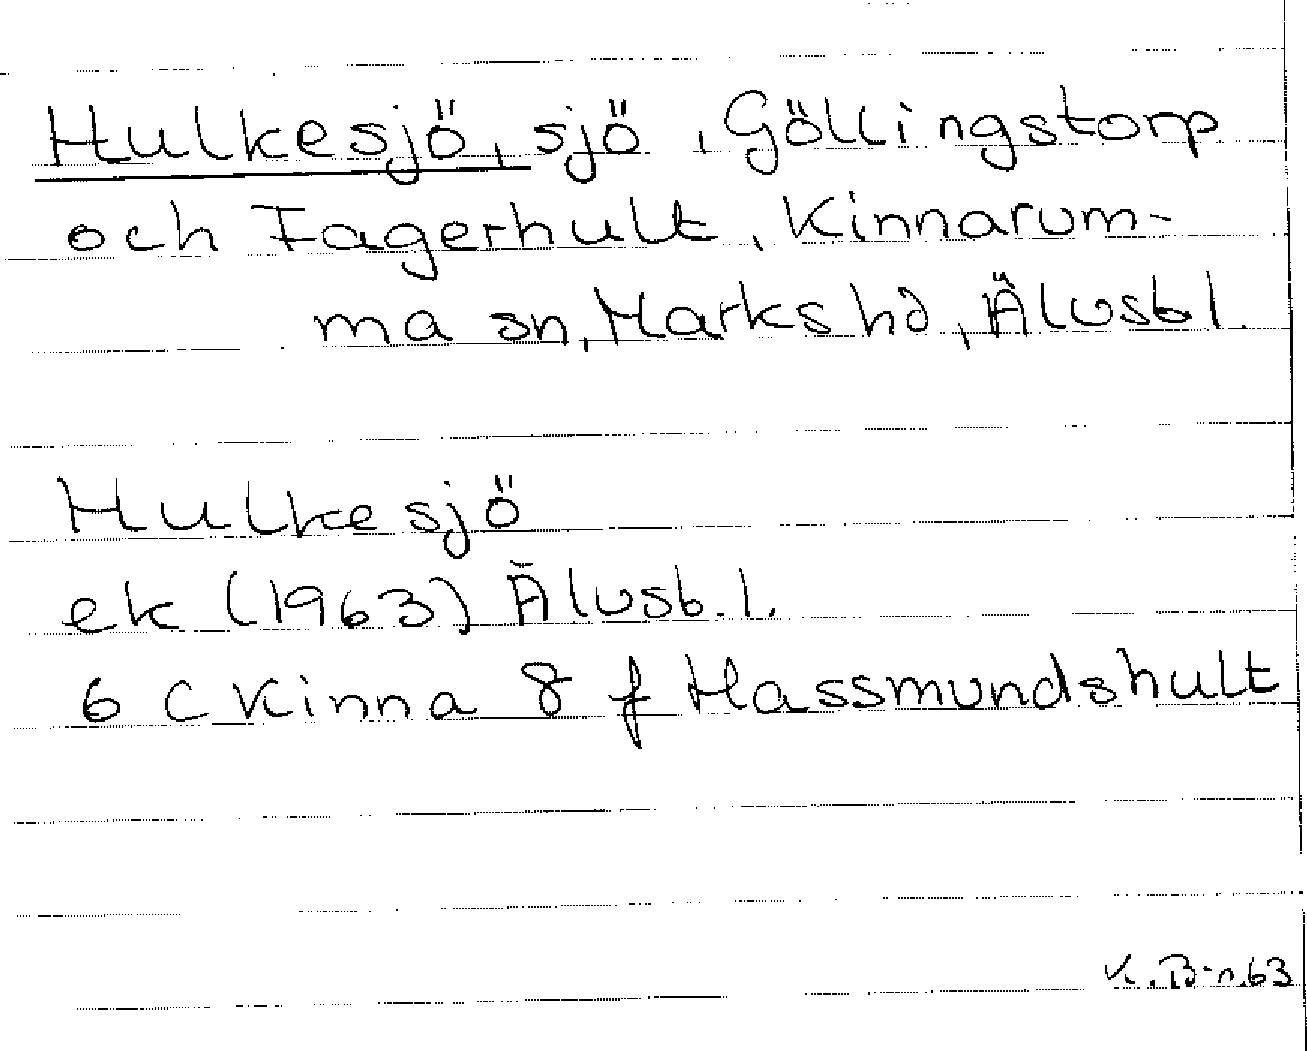 Hulkesjö, sjö, Göllingstorp
och Fagerhult, Kinnarum-
ma sn, Marks hd, Älvsb l.
Hulkesjö
ek (1963) Älvsb. l.
6 C Kinna 8 f Hassmundshult
K. B-n. 63